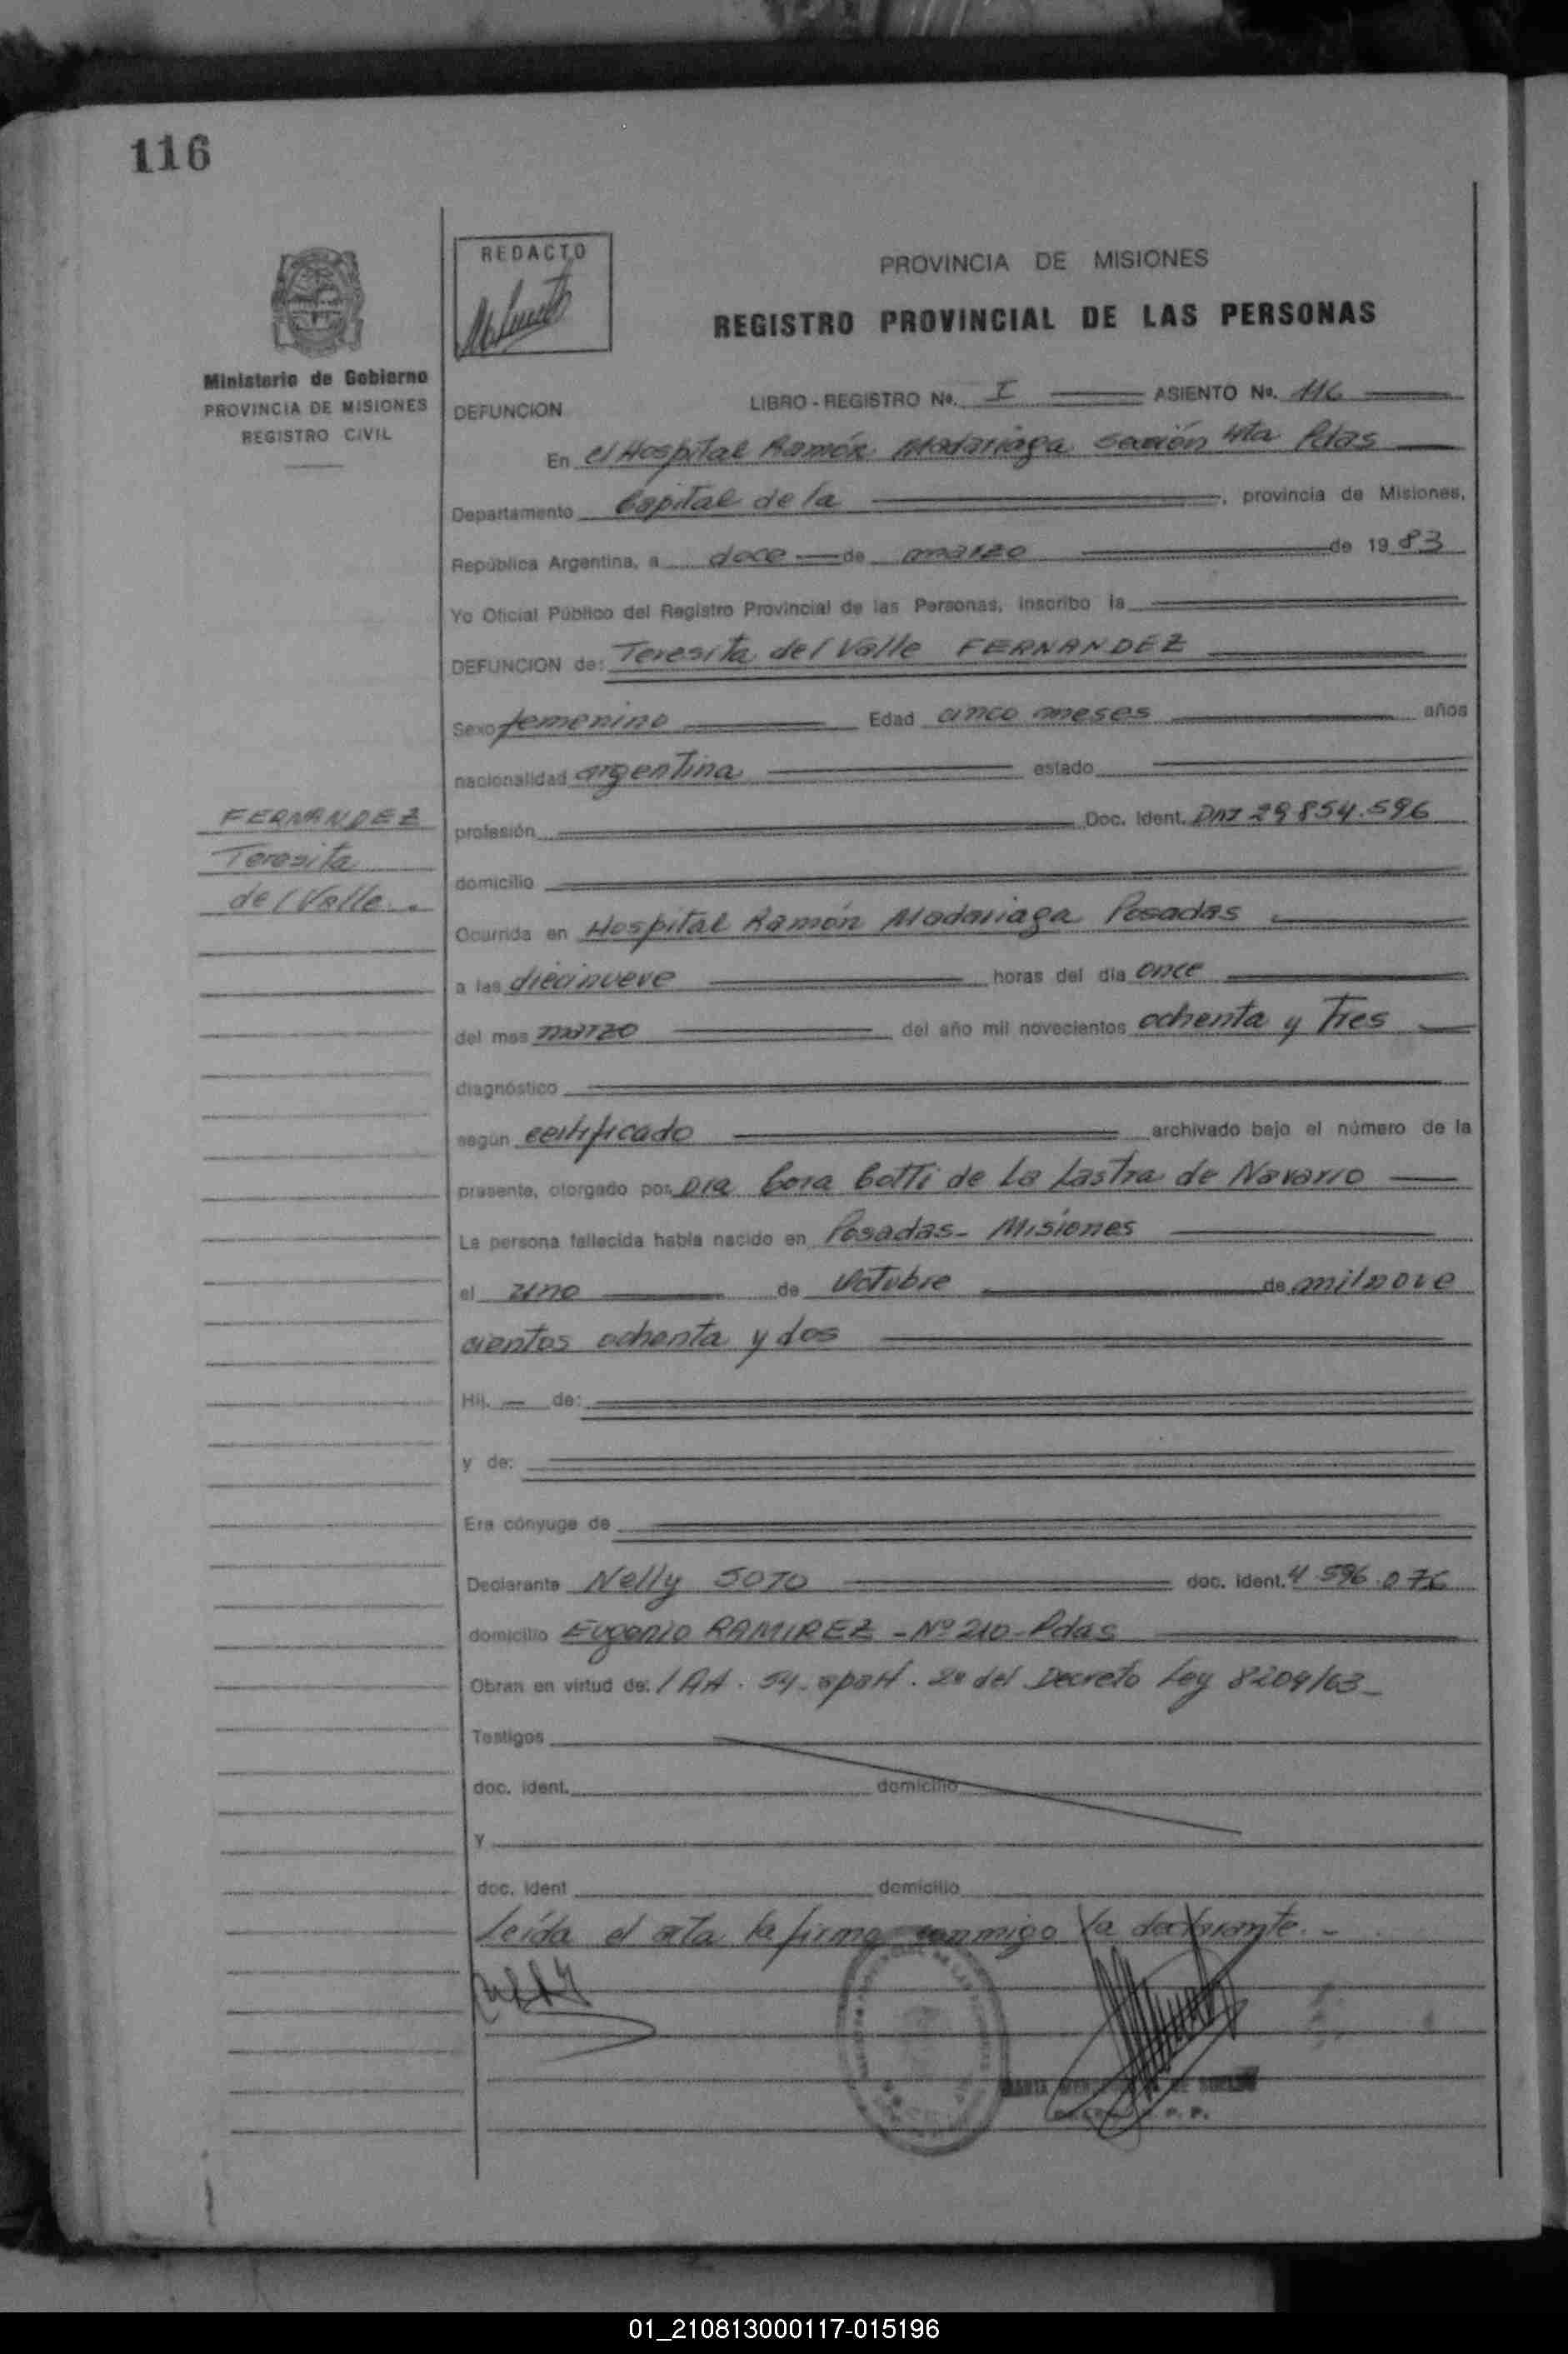 116
REDACTO
PROVINCIA DE MISIONES
REGISTRO PROVINCIAL DE LAS PERSONAS
Ministerio de Gobierno
PROVINCIA DE MISIONES
REGISTRO CIVIL
DEFUNCION LIBRO - REGISTRO No. I ASIENTO No. 116
En el Hospital Ramón Madariaga sección 4ta Pdas
Departamento Capital de la , provincia de Misiones,
República Argentina, a doce de marzo de 1983
Yo Oficial Público del Registro Provincial de las Personas, inscribo la
DEFUNCION de: Teresita del Valle FERNANDEZ
Sexo femenino Edad cinco meses años
nacionalidad argentina estado
FERNANDEZ
Teresita
del Valle.
profesión Doc. Ident. DNI 29.854.596
domicilio
Ocurrida en Hospital Ramón Madariaga Posadas
a las diecinueve horas del día once
del mes marzo del año mil novecientos ochenta y Tres
diagnóstico
según certificado archivado bajo el número de la
presente, otorgado por Dra Cora Cotti de La Lastra de Navarro
La persona fallecida había nacido en Posadas - Misiones
el uno de Octubre de mil nove
cientos ochenta y dos
Hij. — de:
y de:
Era cónyuge de
Declarante Nelly SOTO doc. ident. 4.596.076
domicilio Eugenio RAMIREZ - Nº 210 - Pdas
Obran en virtud de: Art. 54. apart. 2º del Decreto Ley 8204/63_
Testigos
doc. ident. domicilio
y
doc. ident domicilio
Leída el acta la firma conmigo la declarante. -
01_210813000117-015196